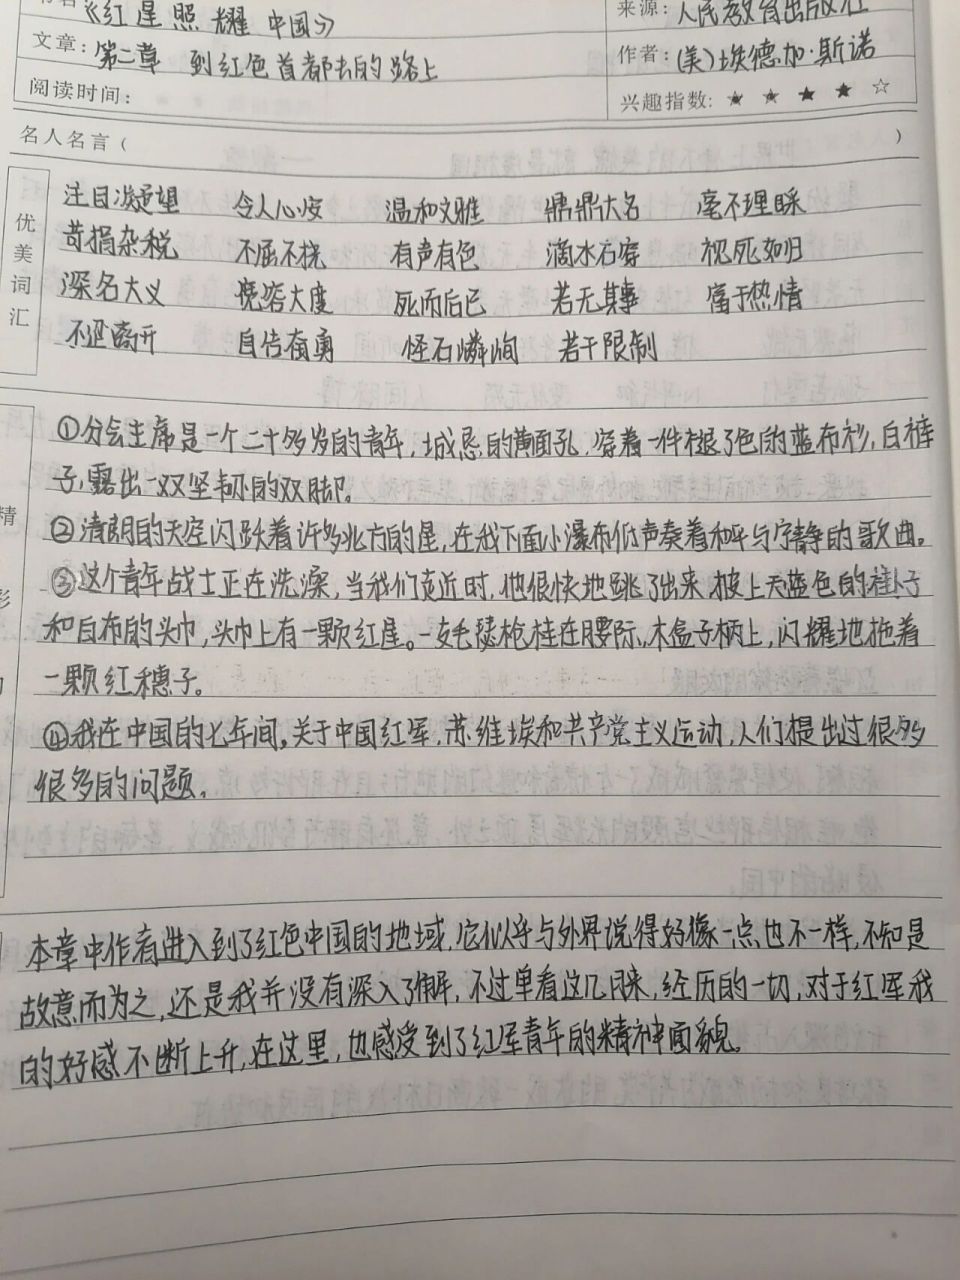 《红星照耀中国》
来源：人民教育出版社
文章：第二章 到红色首都去的路上
作者：(美)埃德加·斯诺
阅读时间：
兴趣指数：★ ★ ★ ★ ☆
名人名言（ ）
优美词汇
注目凝望 令人心安 温和文雅 鼎鼎大名 毫不理睬
苛捐杂税 不屈不挠 有声有色 滴水石穿 视死如归
深名大义 宽容大度 死而后已 若无其事 富于热情
不必离开 自告奋勇 怪石嶙峋 若干限制
①分会主席是一个二十多岁的青年，诚恳的黄面孔，穿着一件褪了色的蓝布衫，白裤
子，露出一双坚韧的双脚。
②清朗的天空闪跃着许多北方的星，在我下面小瀑布低声奏着和平与宁静的歌曲。
③这个青年战士正在洗澡，当我们走近时，他很快地跳了出来，披上天蓝色的褂子
和白布的头巾，头巾上有一颗红星。一支毛瑟枪挂在腰际，木盒子柄上，闪耀地拖着
一颗红穗子。
④我在中国的七年间，关于中国红军，苏维埃和共产党主义运动，人们提出过很多
很多的问题。
本章中作者进入到了红色中国的地域，它似乎与外界说得好像一点也不一样，不知是
故意而为之，还是我并没有深入了解，不过单看这几日来，经历的一切，对于红军我
的好感不断上升，在这里，也感受到了红军青年的精神面貌。